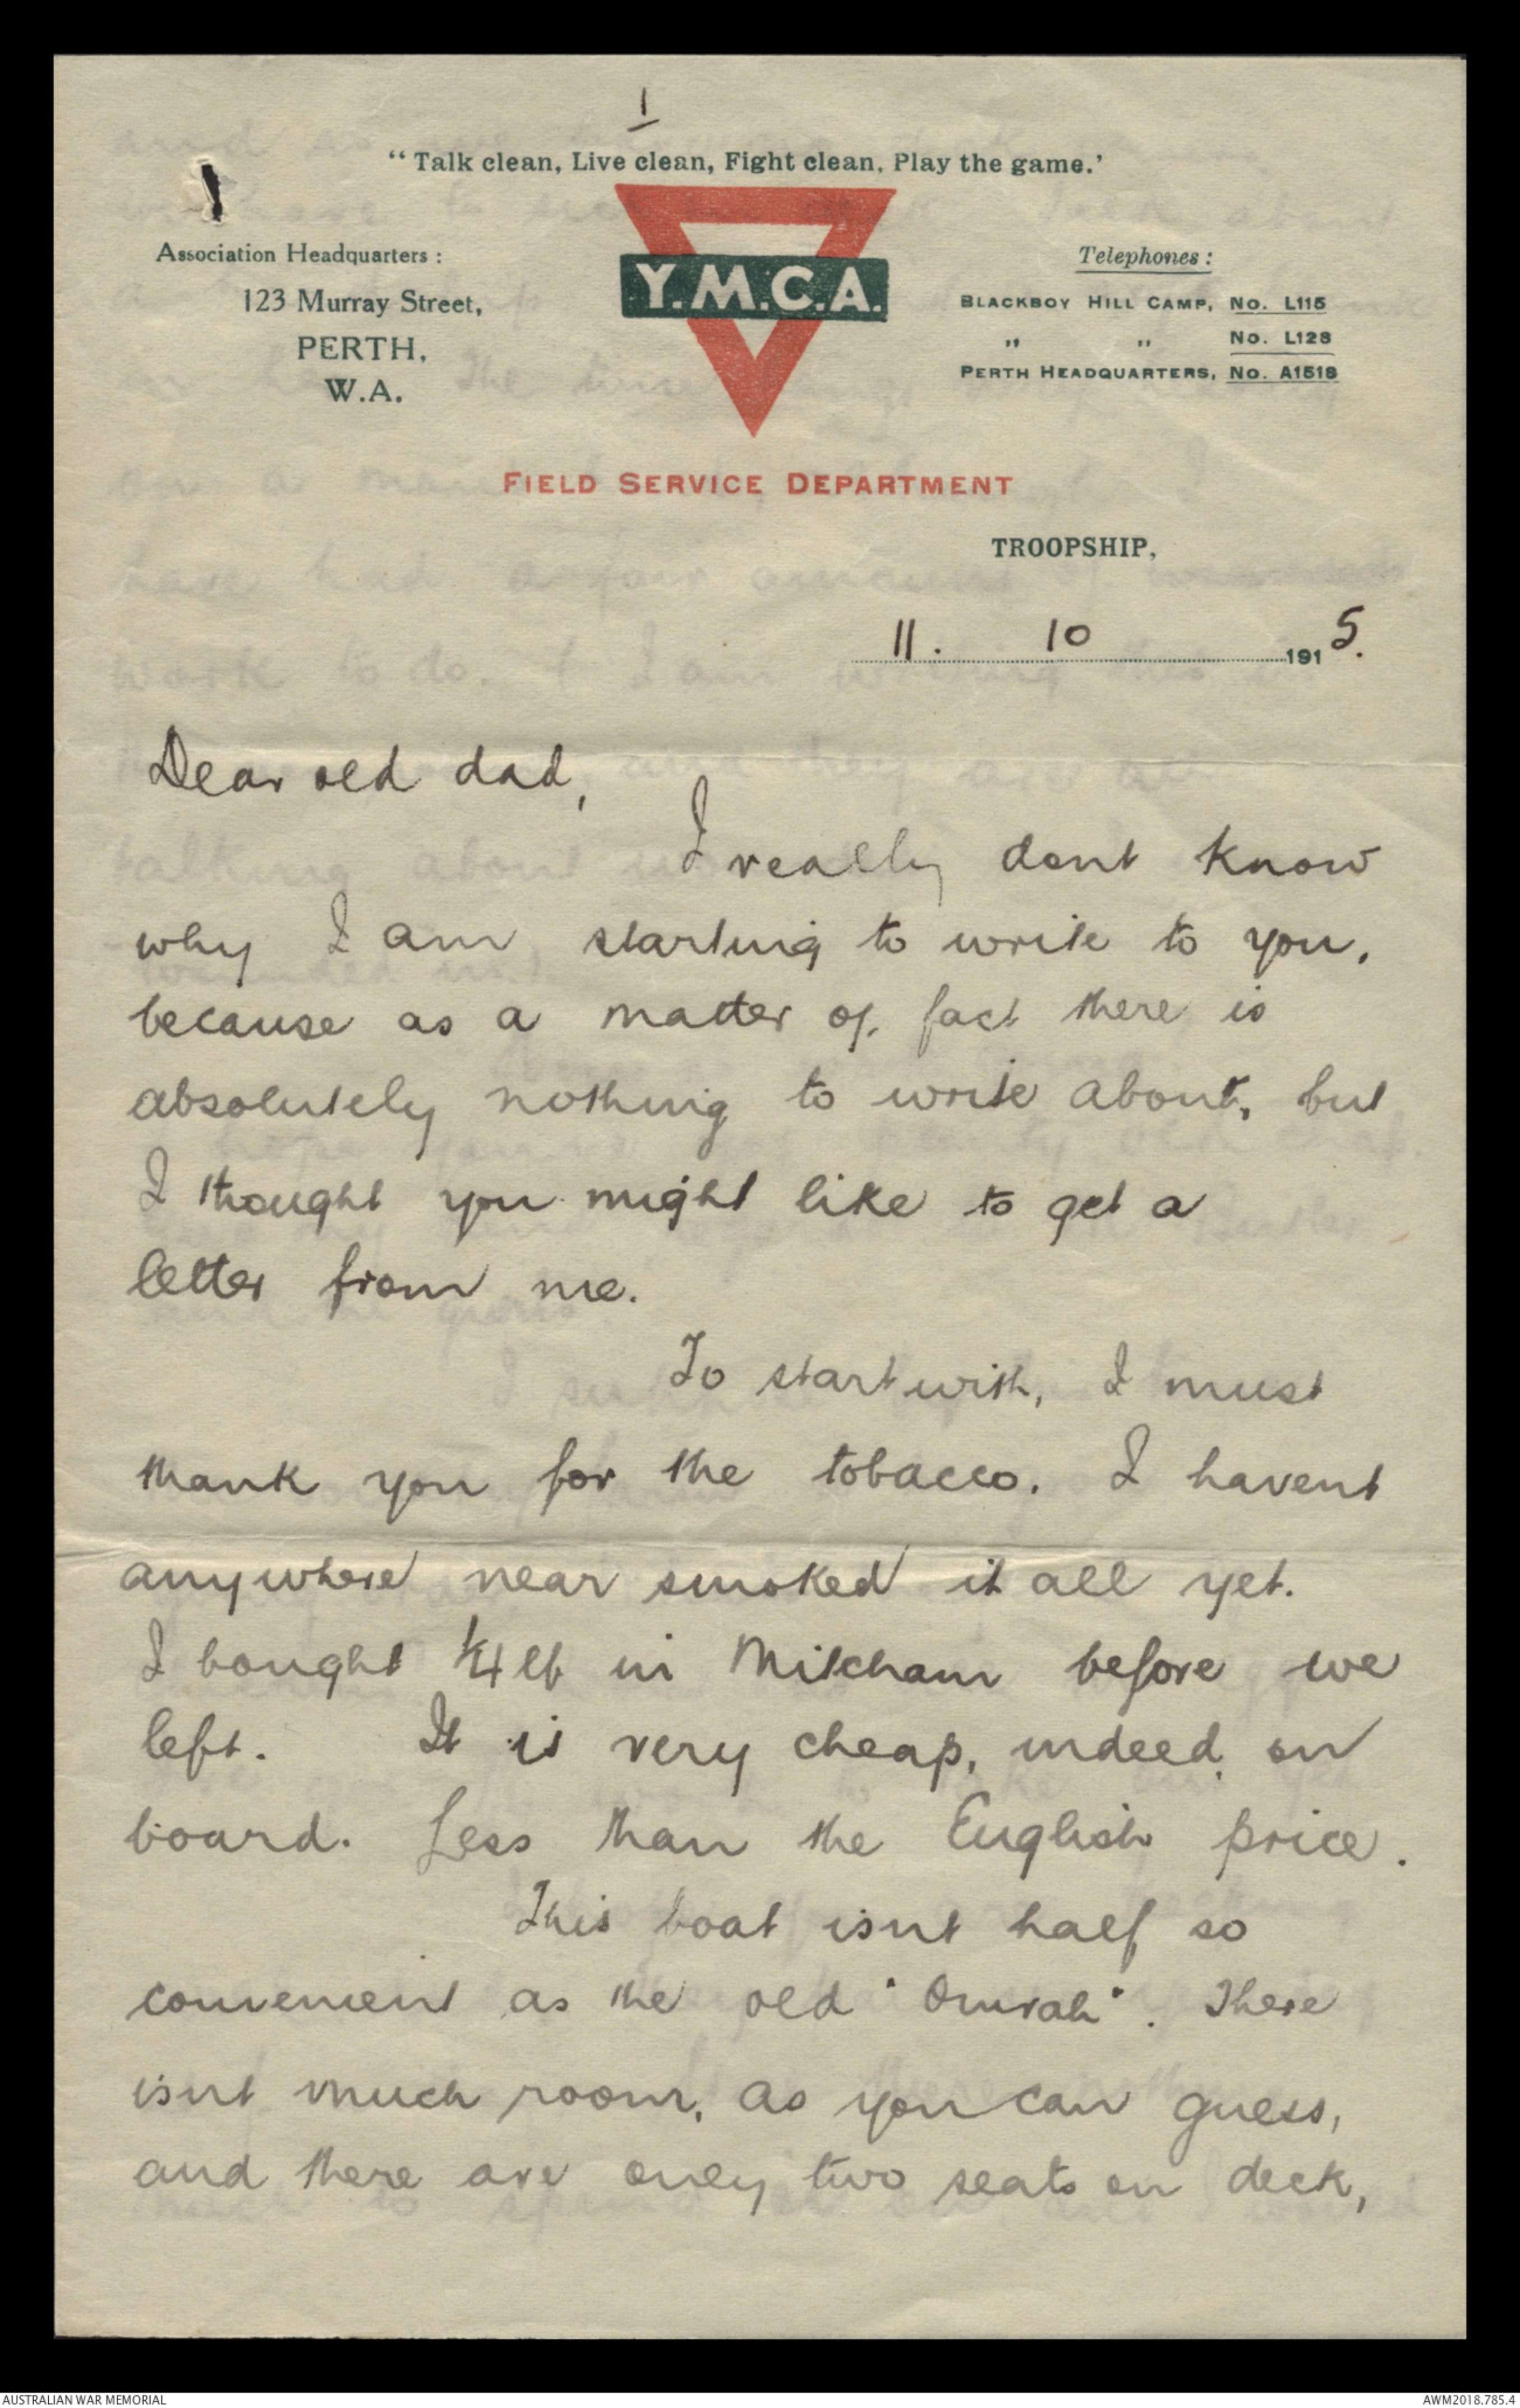 1
“Talk clean, Live clean, Fight clean, Play the game.’
Association Headquarters :
123 Murray Street,
PERTH,
W.A.
Y.M.C.A.
Telephones :
BLACKBOY HILL CAMP, No. L115
" " No. L128
PERTH HEADQUARTERS, No. A1518
FIELD SERVICE DEPARTMENT
TROOPSHIP,
11. 10 1915.
Dear old dad,
I really dont know
why I am starting to write to you,
because as a matter of fact there is
absolutely nothing to write about, but
I thought you might like to get a
letter from me.
To start with, I must
thank you for the tobacco. I havent
anywhere near smoked it all yet.
I bought ¼ lb in Mitcham before we
left. It is very cheap, indeed, on
board. Less than the English price.
This boat isnt half so
convenient as the old "Omrah". There
isnt much room, as you can guess,
and there are only two seats on deck,
AUSTRALIAN WAR MEMORIAL
AWM2018.785.4